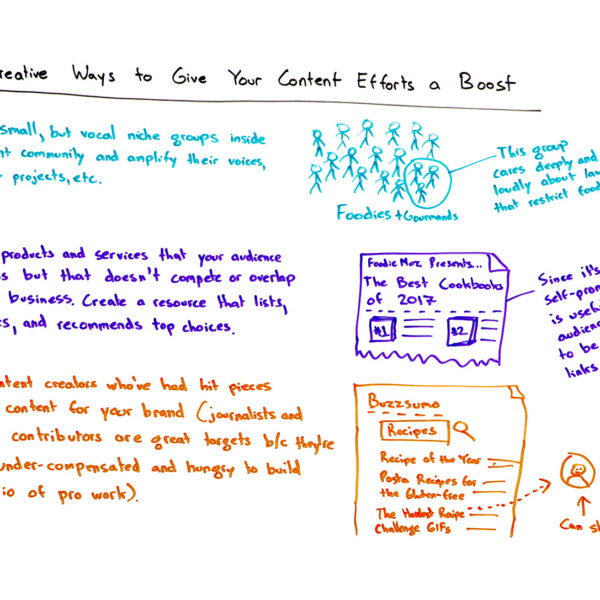 reative Ways to Give Your Content Efforts a Boost
small, but vocal niche groups inside
nt community and amplify their voices,
projects, etc.
Foodies + Gourmands
This group
cares deeply and
loudly about law
that restrict food
products and services that your audience
s but that doesn't compete or overlap
business. Create a resource that lists,
s, and recommends top choices.
Foodie Moz Presents...
The Best Cookbooks
of 2017
#1
#2
Since it's
self-prom
is usef
audien
to be
links
ntent creators who've had hit pieces
content for your brand (journalists and
contributors are great targets b/c they're
under-compensated and hungry to build
io of pro work).
Buzzsumo
Recipes
Recipe of the Year
Pasta Recipes for
the Gluten-free
The Hardest Recipe
Challenge GIFs
Can sh